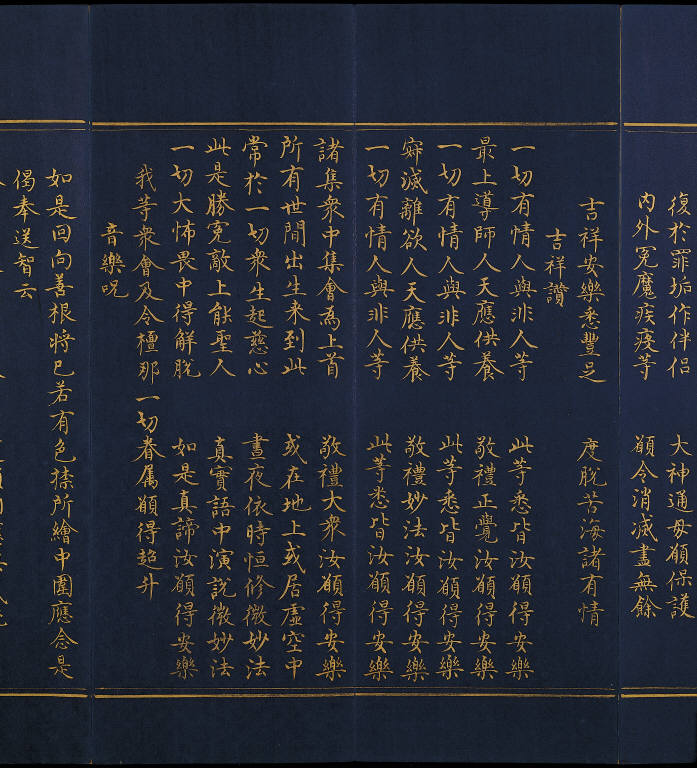 復於罪垢作伴侶　大神通母願保護
內外冤魔疾疫等　願令消滅盡無餘
吉祥安樂悉豐足　度脫苦海諸有情
吉祥讚
一切有情人與非人等　此等悉皆汝願得安樂
最上導師人天應供養　敬禮正覺汝願得安樂
一切有情人與非人等　此等悉皆汝願得安樂
寂滅離欲人天應供養　敬禮妙法汝願得安樂
一切有情人與非人等　此等悉皆汝願得安樂
諸集衆中集會為上首　敬禮大衆汝願得安樂
所有世間出生来到此　或在地上或居虛空中
常於一切衆生起慈心　晝夜依時恒修微妙法
此是勝冤敵上能聖人　真實語中演說微妙法
一切大怖畏中得解脫　如是真諦汝願得安樂
我等衆會及令檀那一切眷属願得超升
音樂呪
如是回向善根將已若有色𢷾所繪中圍應念是
偈奉送智云